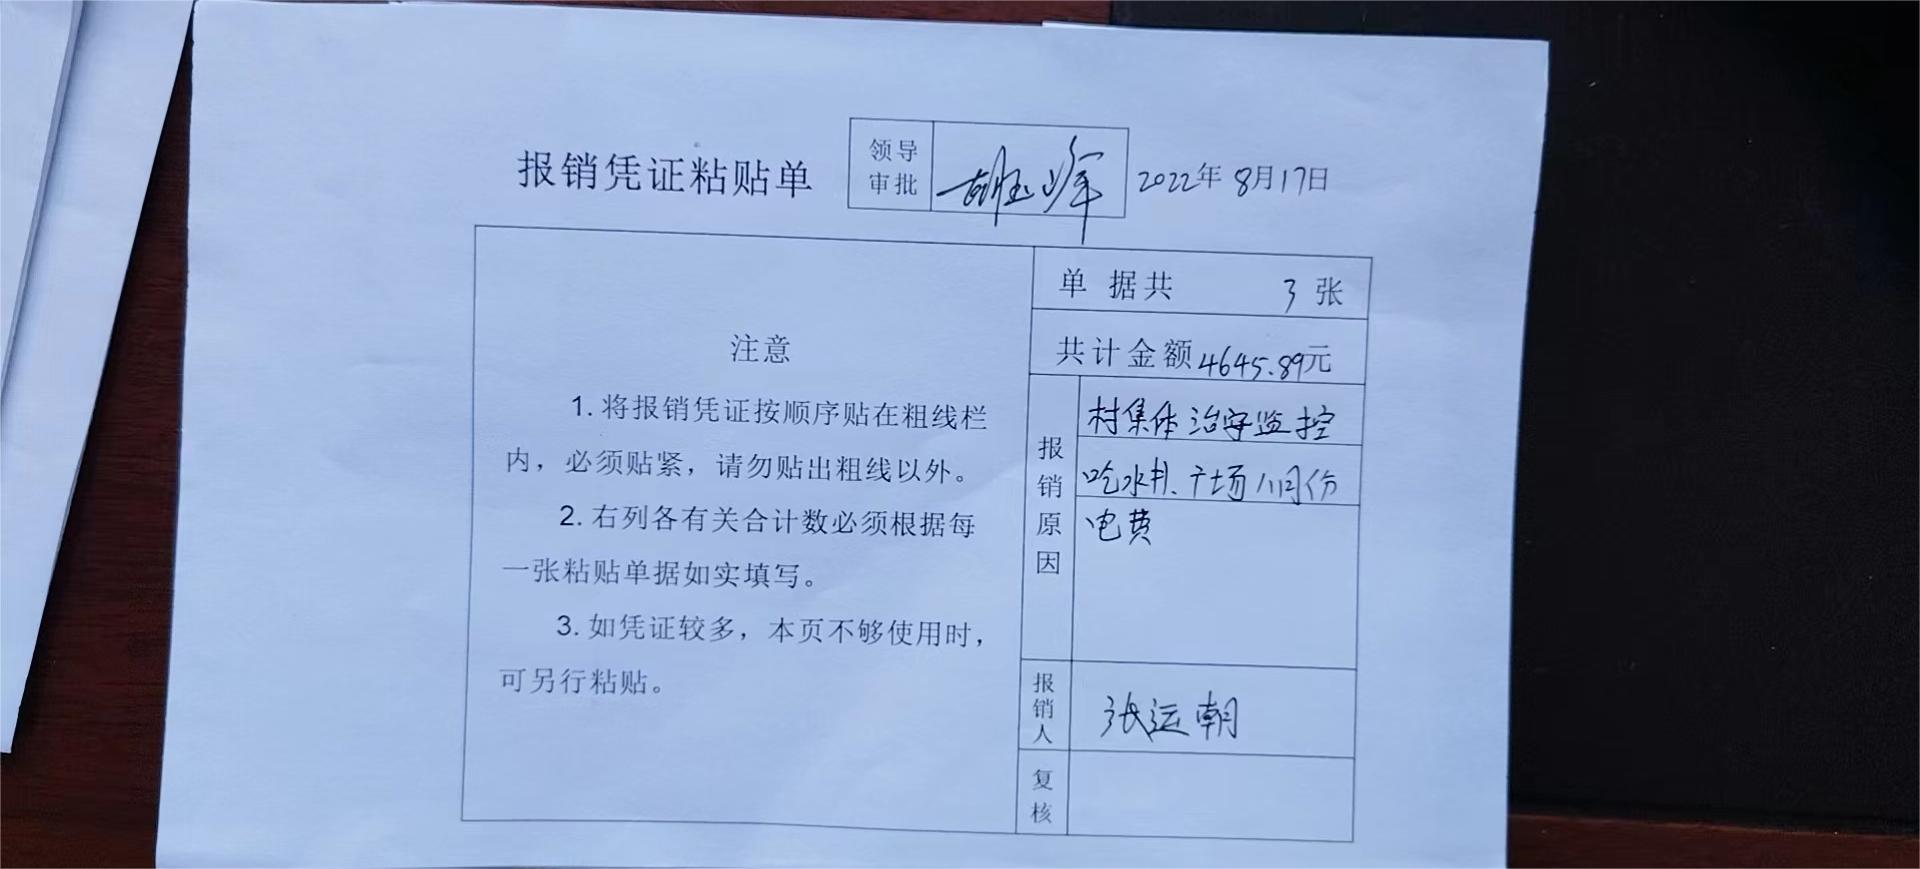 报销凭证粘贴单
领导
审批
2022年8月17日
单据共 3 张
共计金额4645.89元
注意
1. 将报销凭证按顺序贴在粗线栏
内，必须贴紧，请勿贴出粗线以外。
2. 右列各有关合计数必须根据每
一张粘贴单据如实填写。
3. 如凭证较多，本页不够使用时，
可另行粘贴。
报销原因
村集体治安监控
吃水井、广场八月份
电费
报销人
张运朝
复核